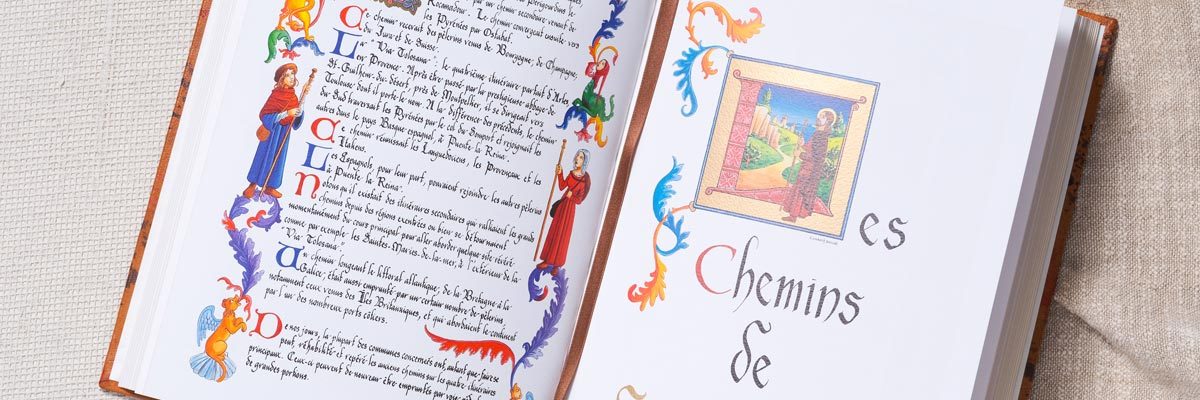 Périgourdins le
Rocamadour. Le
un chemin secondaire venait de
les Pyrénées par Ostabat.
Le chemin convergeait ensuite vers
Ce chemin recevait des pèlerins venus de Bourgogne, de Champagne,
du Jura et de Suisse.
La "Via Tolosana", le quatrième itinéraire partait d'Arles
en Provence. Après être passé par la prestigieuse abbaye de
St-Guilhem du désert, près de Montpellier, il se dirigeait vers
Toulouse dont il porte le nom. A la différence des précédents, le chemin
du Sud traversait les Pyrénées par le col du Somport et rejoignait les
autres dans le pays Basque espagnol, à Puente-la-Reina.
Ce chemin réunissait les Languedociens, les Provençaux et les
Italiens.
Les Espagnols, pour leur part, pouvaient rejoindre les autres pèlerins
à Puente-la-Reina.
Notons qu'il existait des itinéraires secondaires qui ralliaient les grands
chemins depuis des régions excentrées ou bien se détournaient
momentanément du cours principal pour aller aborder quelque site révéré
comme par exemple les Saintes-Maries-de-la-mer, à l'extérieur de la
"Via Tolosana"
Un chemin longeant le littoral atlantique, de la Bretagne à la
Galice, était aussi emprunté par un certain nombre de pèlerins
notamment ceux venus des Iles Britanniques, et qui abordaient le continent
par l'un des nombreux ports côtiers.
De nos jours, la plupart des communes concernées ont, autant que faire se
peut, réhabilité et repéré les anciens chemins sur les quatre itinéraires
principaux. Ceux-ci peuvent de nouveau être empruntés par
de grandes portions.
Les
Chemins
de